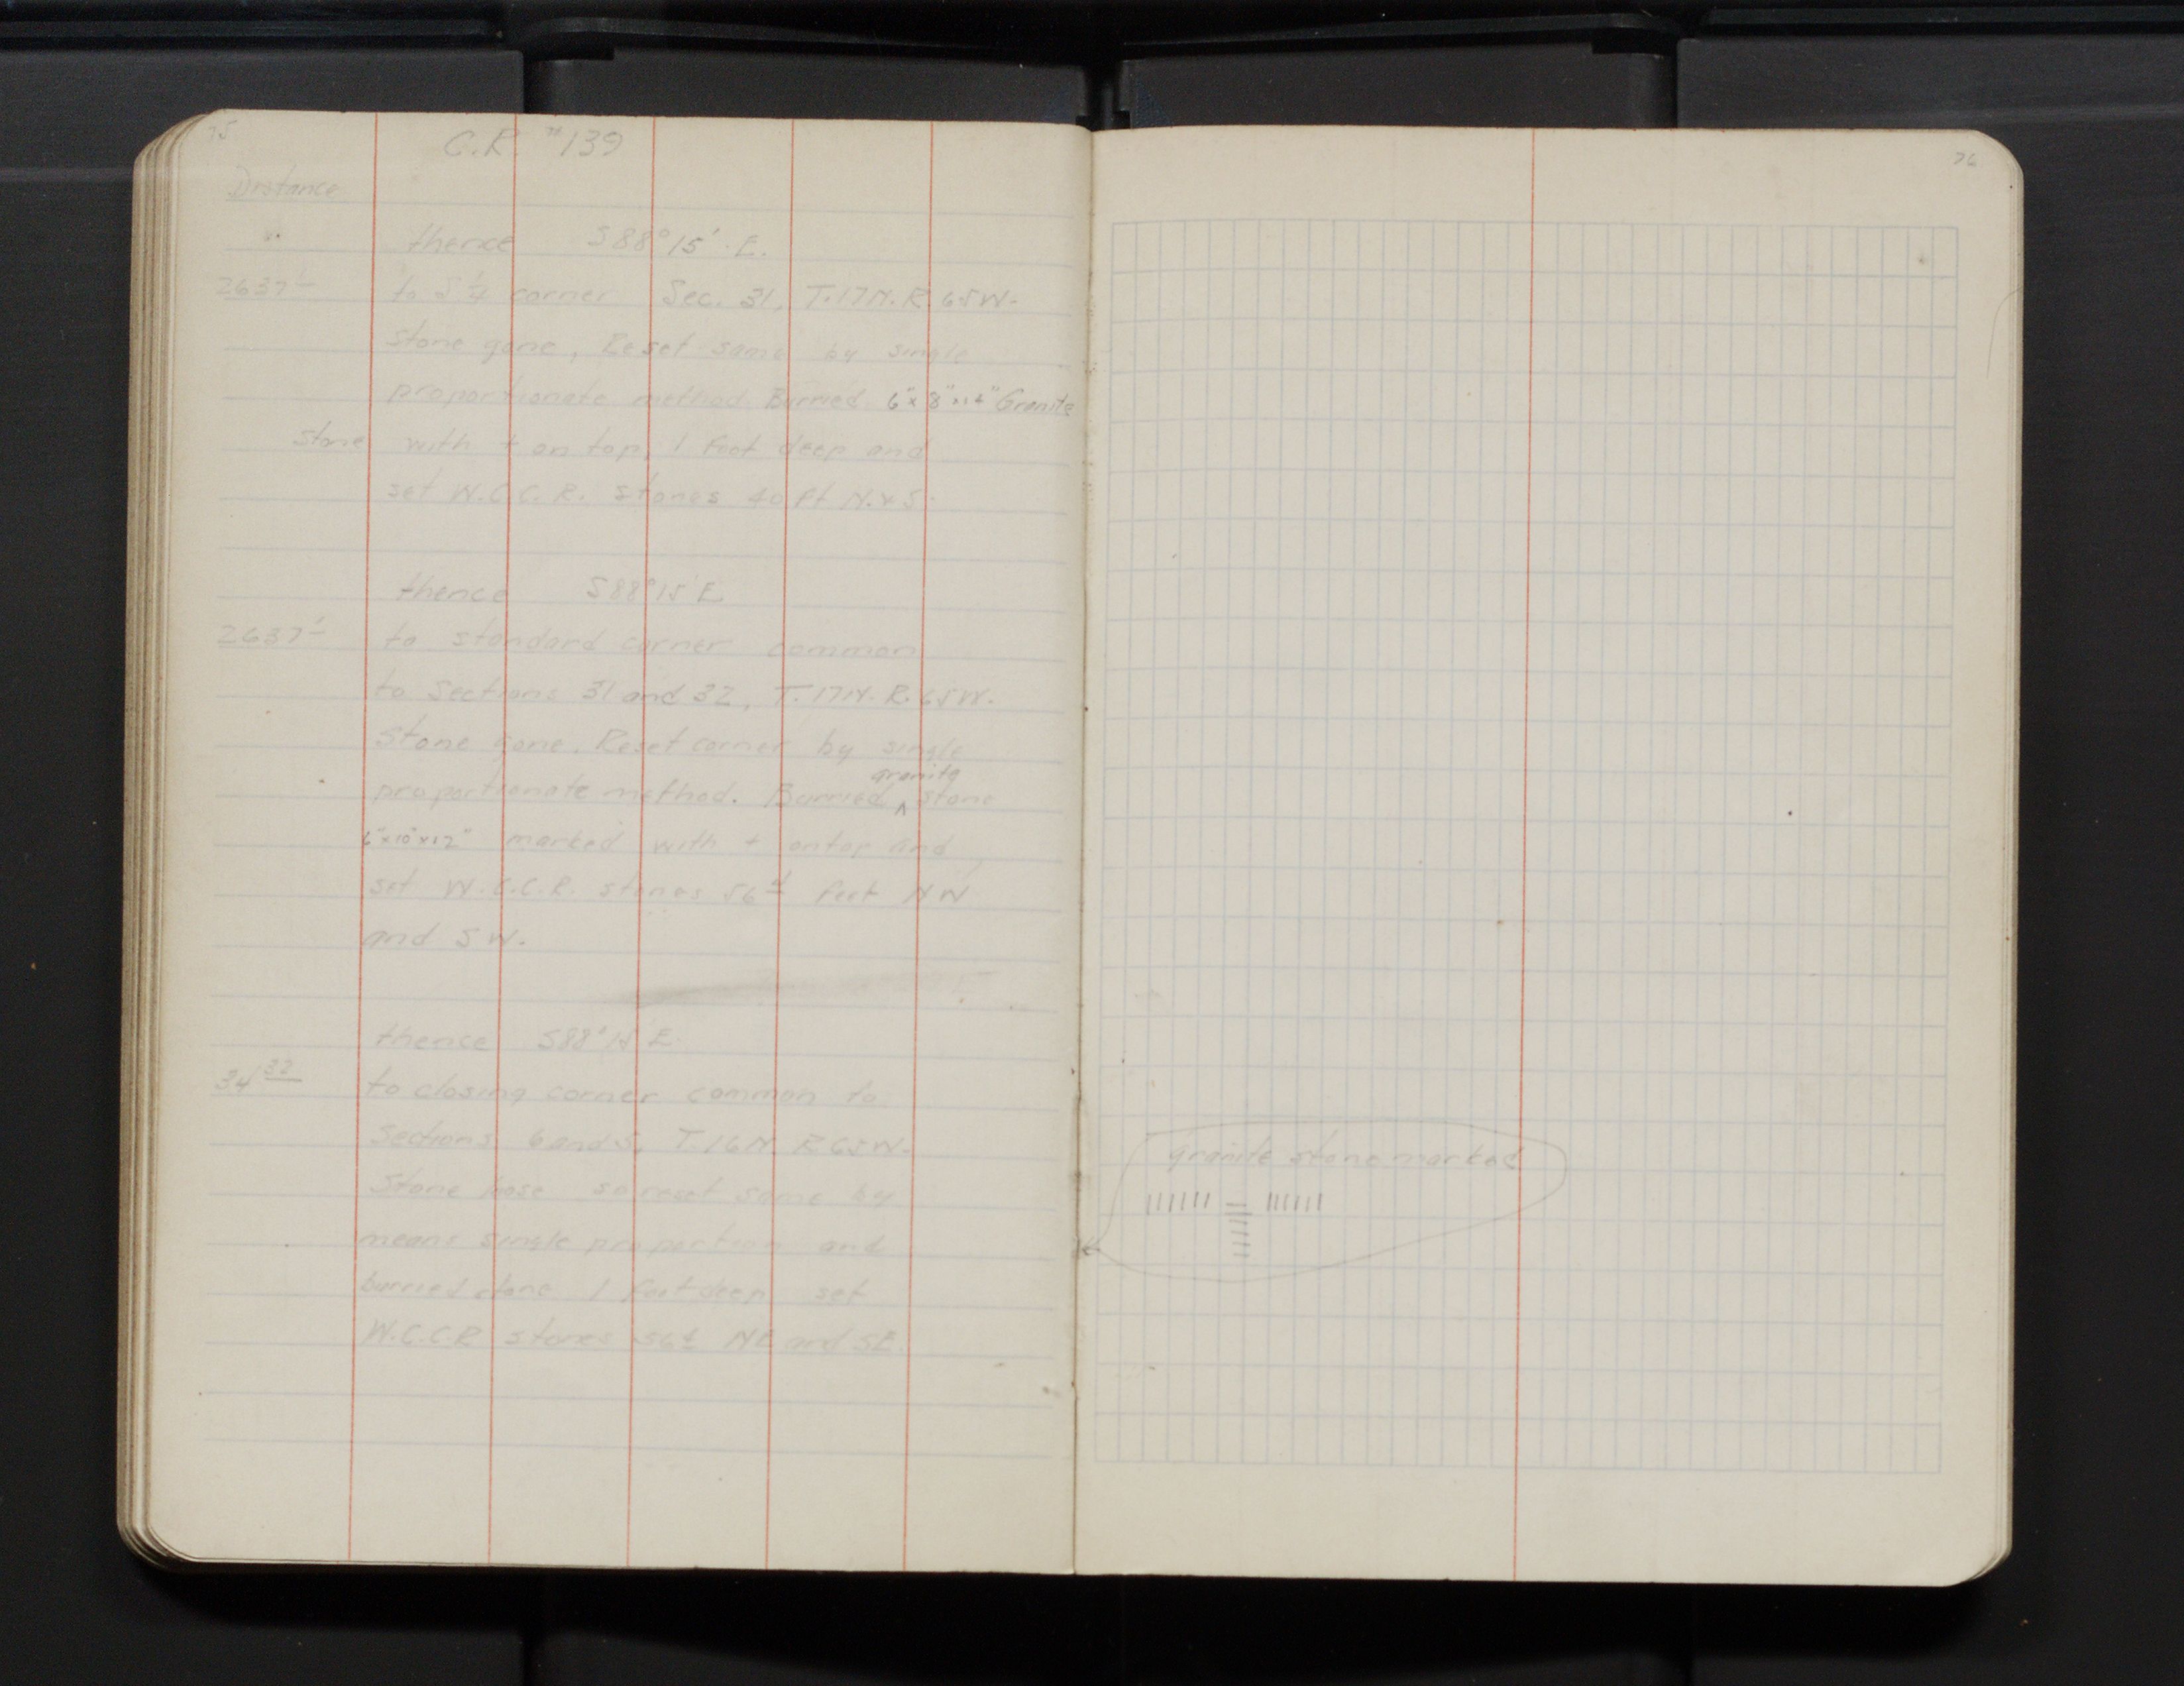 75
C.R. #139
Distance
thence S88°15' E.
2637 1
to S 1/4 corner Sec. 31, T.17N. R 65W.
Stone gone, Reset same by single
proportionate method. Burried 6"x8"x12" Granite
stone with + on top, 1 foot deep and
set W.C.C.R. stones 40 ft N.&S.
thence S88°15'E
2637 1
to standard corner common
to Sections 31 and 32, T.17N. R.65W.
Stone gone. Reset corner by single
proportionate method. Burried ^ granite stone
6"x10"x12" marked with + on top and
set W.C.C.R. stones 56 feet NW
and SW.
thence S88°15'E.
34 32
to closing corner common to
Sections 6 and 5, T.16N. R65W.
Stone loose so reset same by
means single proportion and
burried stone 1 foot deep set
W.C.C.R stones 56 NE and SE.
76
granite stone marked